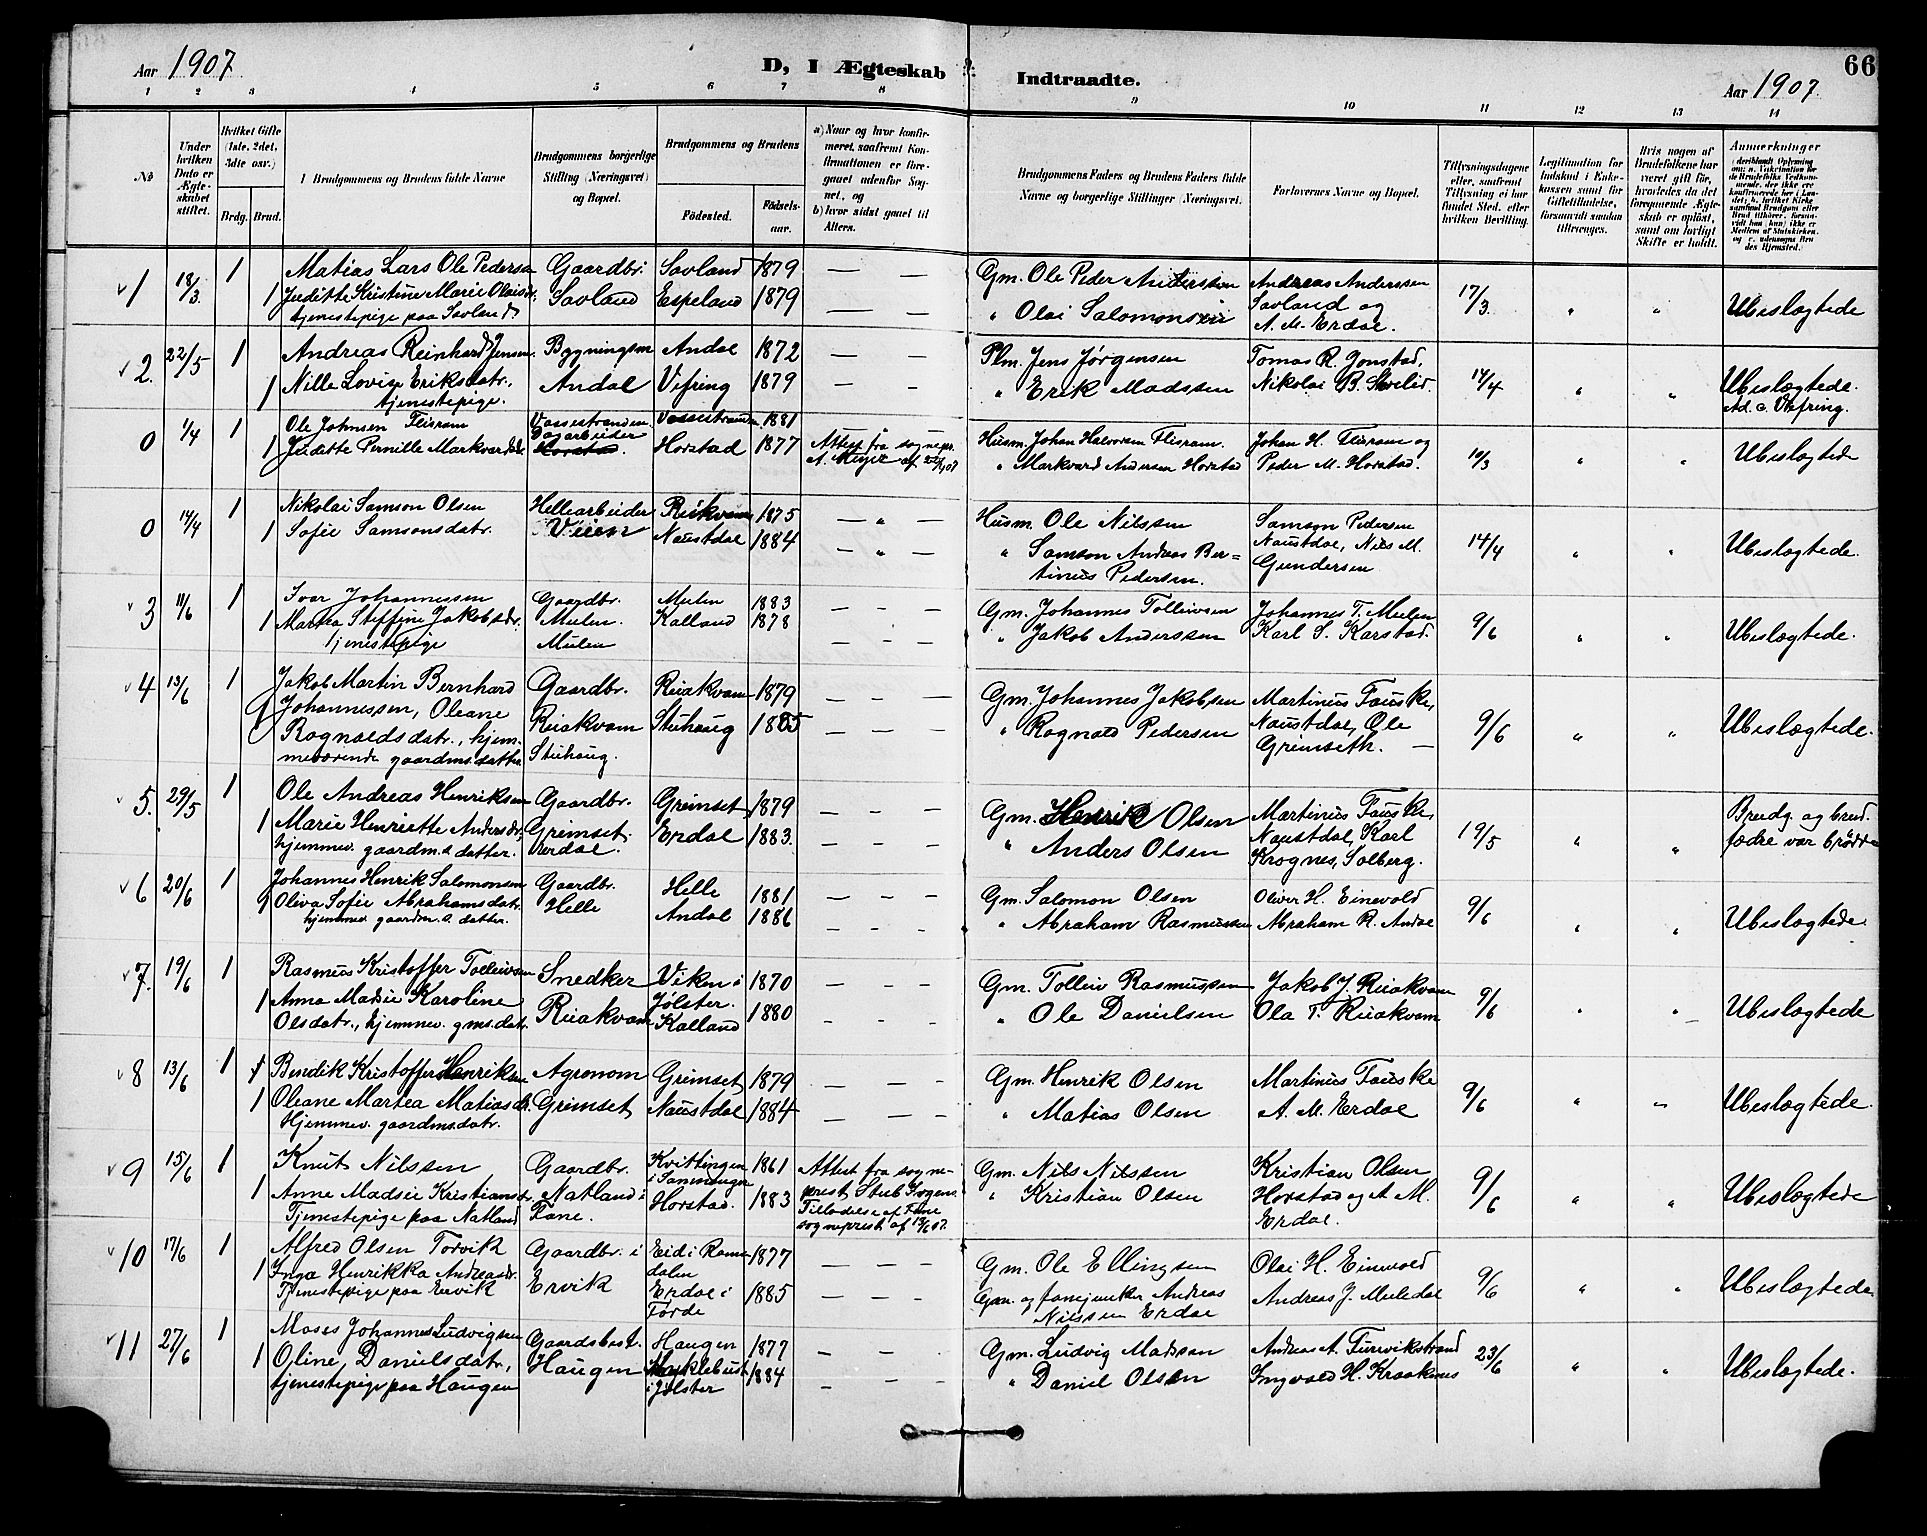 Aar 1907
D, I Ægteskab Indtraadte.
66
Aar 1907
1 2 3 4 5 6 7 8 9 10 11 12 13 14
No
Under hvilken Dato er Ægteskabet stiftet.
Hvilket Gifte (1ste, 2det, 3die osv.)
Brdg. Brud.
Brudgommens og Brudens fulde Navne
Brudgommens borgerlige Stilling (Næringsvei) og Bopæl.
Brudgommens og Brudens
Födested.
Födselsaar.
a) Naar og hvor konfirmeret, saafremt Konfirmationen er foregaaet udenfor Sognet, og
b) hvor sidst gaaet til Alters.
Brudgommens Faders og Brudens Faders fulde Navne og borgerlige Stillinger (Næringsvei).
Forlovernes Navne og Bopæl.
Tillysningsdagene eller, saafremt Tillysning ei har fundet Sted, efter hvilken Bevilling.
Legitimation for Indskud i Enkekassen samt for Giftetilladelse, forsaavidt saadan tiltrænges.
Hvis nogen af Brudefolkene har været gift för, hvorledes da det foregaaende Ægteskab er oplöst, samt om lovligt Skifte er holdt.
Anmerkninger
1 18/3 1 Matias Lars Ole Pedersen Gaardbr. Savland 1879 — — Gm. Ole Peder Anderssen Andreas Anderssen 17/3 " " Ubeslægtede
1 Juditte Kristine Marie Olaisdr. Savland Espeland 1879 — — " Olai Salomonsen Savland og
tjenestepige paa Savland A. M. Erdal.
2. 22/5 1 Andreas Reinhard Jensen. Bygningsm Andal 1872 — — Plm. Jens Jørgensen Tomas R. Gonstad. 14/4 " " Ubeslægtede.
1 Nille Lovise Eriksdatr., Andal Vefring 1879 — — " Erik Madssen Nikolai B.
tjenestepige. Vefring.
0 1/4 1 Ole Johnsen Flisram Vossestranden. Vossestranden 1881 Husm. Johan Halvorsen Flisram. Johan H. Flisram og 10/3 " " Ubeslægtede
1 Juditte Pernille Markvardsdr Dagarbeider Horstad. Horstad 1877 Attest fra sognepr. A. Meyer af " Markvard Andersen Horstad Peder M. Horstad.
0 14/4 1 Nikolai Samson Olsen Hellearbeider Reikvam 1875 — " — Husm. Ole Nilssen Samson Pedersen 14/4 " " Ubeslægtede.
1 Sofie Samsonsdatr. Veien Naustdal 1884 — " — " Samson Andreas Ber- Naustdal, Nils M.
tinius Pedersen. Gundersen
3 11/6 1 Ivar Johannessen Gaardbr. Mulen 1883 — — — Gm. Johannes Tolleivsen Johannes T. Mulen 9/6 " " Ubeslægtede.
1 Martha Steffine Jakobsdr. Mulen. Kalland 1878 " Jakob Anderssen Karl S. Karstad.
tjenestepige Mulen — — —
4 13/6 1 Jakob Martin Bernhard Gaardbr. Reiakvam 1879 — — — Gm. Johannes Jakobsen Martinius Fauske, 9/6 " " Ubeslægtede.
1 Johannessen, Oleane Reiakvam Stuhaug 1885 — — — " Rognald Pedersen Naustdal, Ole
Rognaldsdatr., hjem- Stuhaug. Grimseth. —
meværende gaardms.datter
5. 29/5 1 Ole Andreas Henriksen Gaardbr. Grimset 1879 — — — Gm. Henrik Olsen Martinius Fauske, 19/5 " " Brudg. og brud.
1 Marie Henriette Andersdr., Grimset. Erdal 1883. " Anders Olsen Naustdal, Karl fædre var brødre
hjemmev. gaardm.s datter. Erdal. Krognes, Solberg.
6 20/6 1 Johannes Henrik Salomonsen Gaardbr. Helle 1881 — — — Gm. Salomon Olsen Oliver H. Einevold 9/6 " " Ubeslægtede.
1 Oliva Sofie Abrahamsdatr. Helle Andal 1886 — — — " Abraham Rasmussen Abraham R. Andal
hjemmev. gaardm.s datter.
7. 19/6 1 Rasmus Kristoffer Tolleivsen Snedker Viken i 1870 — — — Gm. Tolleiv Rasmussen Jakob J. Reiakvam 9/6 " " Ubeslægtede
1 Anna Madsie Karoline Reiakvam Jølster.
Olsdatr., hjemmev. gms.datr. Kalland 1880 — — — " Ole Danielsen Ola T. Reiakvam
8 13/6 1 Bendik Kristoffer Henriksen Agronom Grimset 1879 — — — Gm. Henrik Olsen Martinius Fauske 9/6 " " Ubeslægtede.
1 Oleane Martea Matiasdr. Grimset Naustdal 1884 — — — " Matias Olsen A. M. Erdal
Hjemmev. gaardmsdatr.
9 15/6 1 Knut Nilssen Gaardbr. Kvittingen 1861 Attest fra sogne- Gm. Nils Nilssen Kristian Olsen 9/6 " " Ubeslægtede
1 Anne Madsie Kristiansdr. Natland i i Sammanger prest Stub Krogen. " Kristian Olsen Horstad og A. M.
Tjenestepige paa Natland Fane. Horstad. 1883 Tilladelse af Fane sogneprest af 13/6 07. Erdal.
10 17/6 1 Alfred Olsen Torvik Gaardbr. i Eid i Roms- 1877 — — — Gm. Ole Ellingsen Olai H. Einevold 9/6 " " Ubeslægtede
1 Inga Henrikka Andreasdr. Ervik dalen
Tjenestepige paa Ervik Erdal i 1885 — — — Gm. og fanejunker Andreas Andreas J. Muledal
Førde Nilssen Erdal
11 27/6 1 Moses Johannes Ludvigsen Gaardsbest. Haugen 1877 — — Gm. Ludvig Madssen Andreas A. Furevikstrand 23/6 " " Ubeslægtede.
1 Oline Danielsdatr., Haugen Myklebust 1884 — — — " Daniel Olsen Ingvald H. Kraakenes
tjenestepige paa Haugen i Jølster